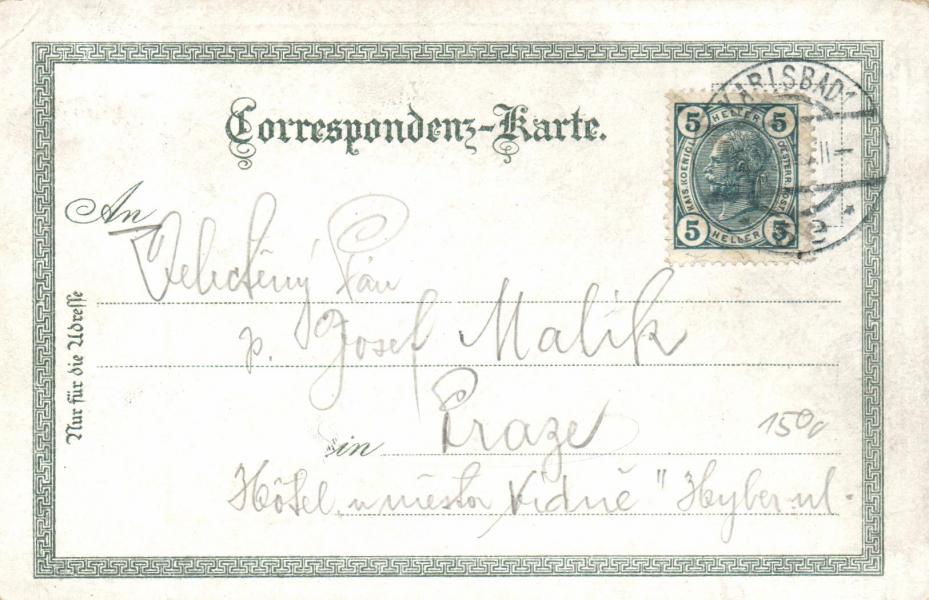 Correspondenz-Karte.
KARLSBAD 1
5 HELLER 5
KAIS. KOENIGL. OESTERR. POST
5 HELLER 5
An
Veleděný Pán
p. Josef Malík
Nur für die Adresse
in Praze
150,
Hôtel u města Vídně" Hyber. ul.